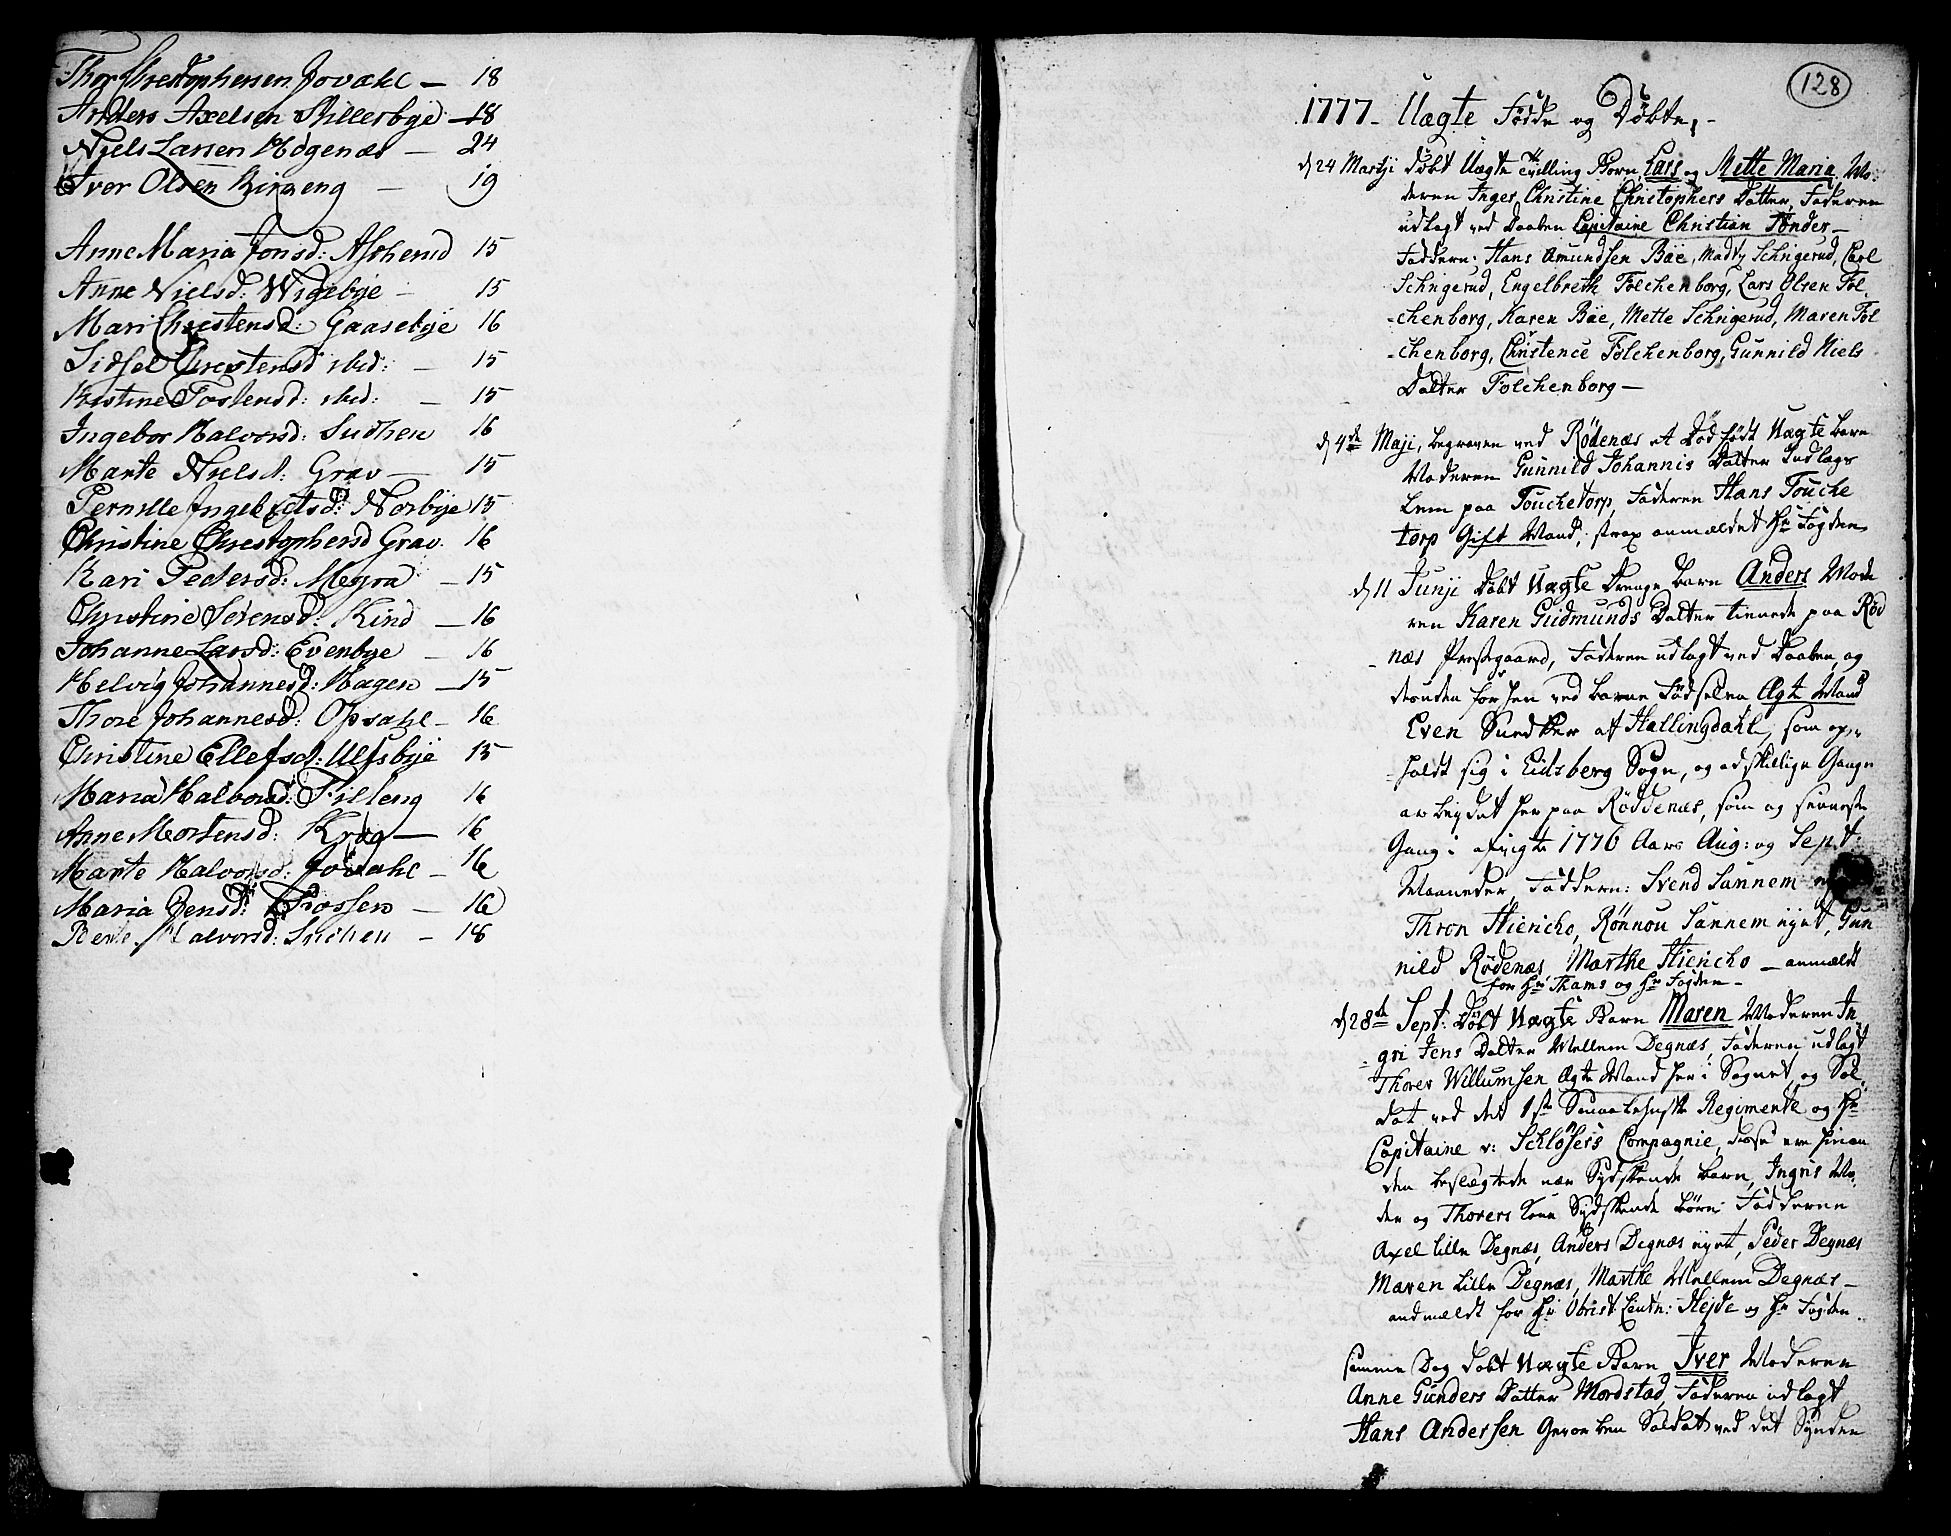 Thor Chrestophersen Jovahl — 18
Anders Axelsen Skillerbye — 18
Niels Larsen Högenæs — 24
Iver Olsen Kirgeng — 19
Anne Maria Jonsd: Asherud 15
Anne Nielsd: Wigebye — 15
Mari Chrestensd: Gaasebye 16
Sidsel Chrestensd ibid: — 15
Kistine Toslensd: ibid: — 15
Ingebor Halvorsd: Sudhen 16
Marte Nielsd: Grav — 15
Pernille Ingebretsd: Norbye 15
Christine Chrestophersd Grav. 16
Kari Pedersd: Meyra — 15
Christine Sörensd: Kind — 16
Johanne Larsd: Evenbye — 16
Helvig Johannesd: Hagen — 15
Thore Johannesd: Opsahl — 16
Christine Ellefsd: Ulfsbye 15
Maria Halvorsd: Tilleng 16
Anne Mortensd: Krog — 16
Marte Halvorsd: Jovahl — 16
Maria Jensd: Fossen — 16
Berte Halvorsd: Sudhen — 18
128
1777 - Uægte Födde og Döbte,-
d 24 Martji Döbt Uægte Tvilling Börn, Lars og Mette Maria. Mo-
deren Inger Christine Christophers Datter, Faderen
udlagt ved Daaben Capitaine Christian Tönder —
Faddern: Hans Amundsen Böe, Mads Schngerud, Carl
Schngerud, Engelbreth Folchenborg, Lars Olsen Fol-
-chenborg, Karen Böe, Mette Schngerud, Maren Fol
-chenborg, Christence Folchenborg, Gunnild Niels
Datter Folchenborg —
d 4de Maji, begraven ved Rödenæs et Död födt Uægte barn
Moderen Gunnild Johannis Datter Indlags
Lem paa Touchetorp, Faderen Hans Touche
torp Gift Mand, strax anmeldet Hr Fogden
d 11 Junji Döbt Uægte Drenge barn Anders Mode
ren Karen Gudmunds Datter tienende paa Röd
-næs Prestegaard, Faderen udlagt ved Daaben, og
desuden forhen ved barne Födselen Ægte Mand
Even Snedker af Hallingdahl, som op-
holdt sig i Eidsberg Sogn, og adskillige Gange
arbeydet her paa Röddenæs, som og seeneste
Gang i afvigte 1776 Aars Aug: og Sept:
Maaneder, Faddern: Svend Sannem
Thron Stiencho, Rönnou Sannem eyet, Gun
nild Rödenæs, Marthe Stiencho — anmeldt
for Hr Thams og Hr Fogden —
d 28de Sept: Döbt Uægte Barn Maren Moderen In
-gri Jens Datter Mellem Degnæs, Faderen udlagt
Thorer Willumsen Ægte Mand her i Sognet, og Sol-
dat ved det 1ste Smaalehnske Regimente og Hr
Capitaine v: Schlösers Compagnie, disse ere hinan
den beslægtede nær Sydskende barn, Ingris Mo-
der og Thorers Kone Sydskende börn. Fadderne
Axel Lille Degnæs, Anders Degnæs eyet, Peder Degnæs
Maren Lille Degnæs, Marthe Mellem Degnæs —
andmeldt for Hr Obrist Leutn: Hejde og Hr Fogden.
Samme Dag Döbt Uægte Barn Iver Moderen
Anne Gunders Datter Mordstad, Faderen udlagt
Hans Andersen Gevorben Soldat ved det Synden